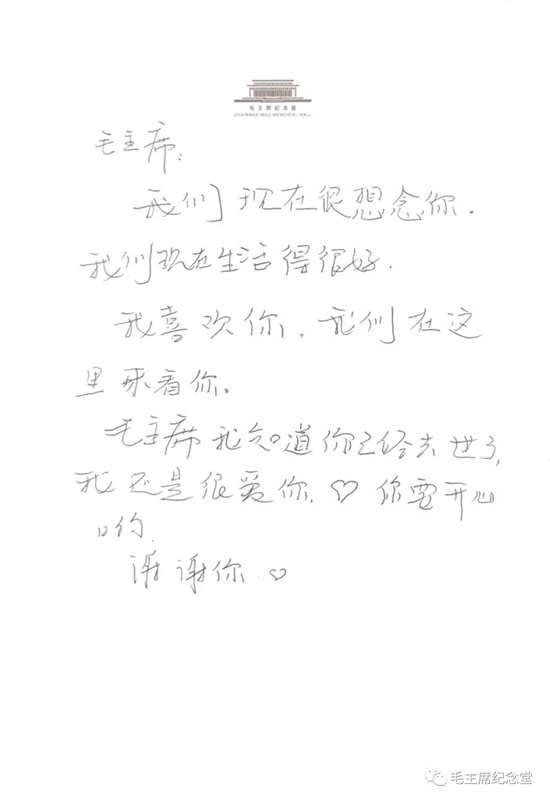 毛主席纪念堂
CHAIRMAN MAO MEMORIAL HALL
毛主席:
我们现在很想念你.
我们现在生活得很好.
我喜欢你,我们在这
里来看你。
毛主席我知道你已经去世了,
我还是很爱你.♡你要开心
哟.
谢谢你.♡
毛主席纪念堂